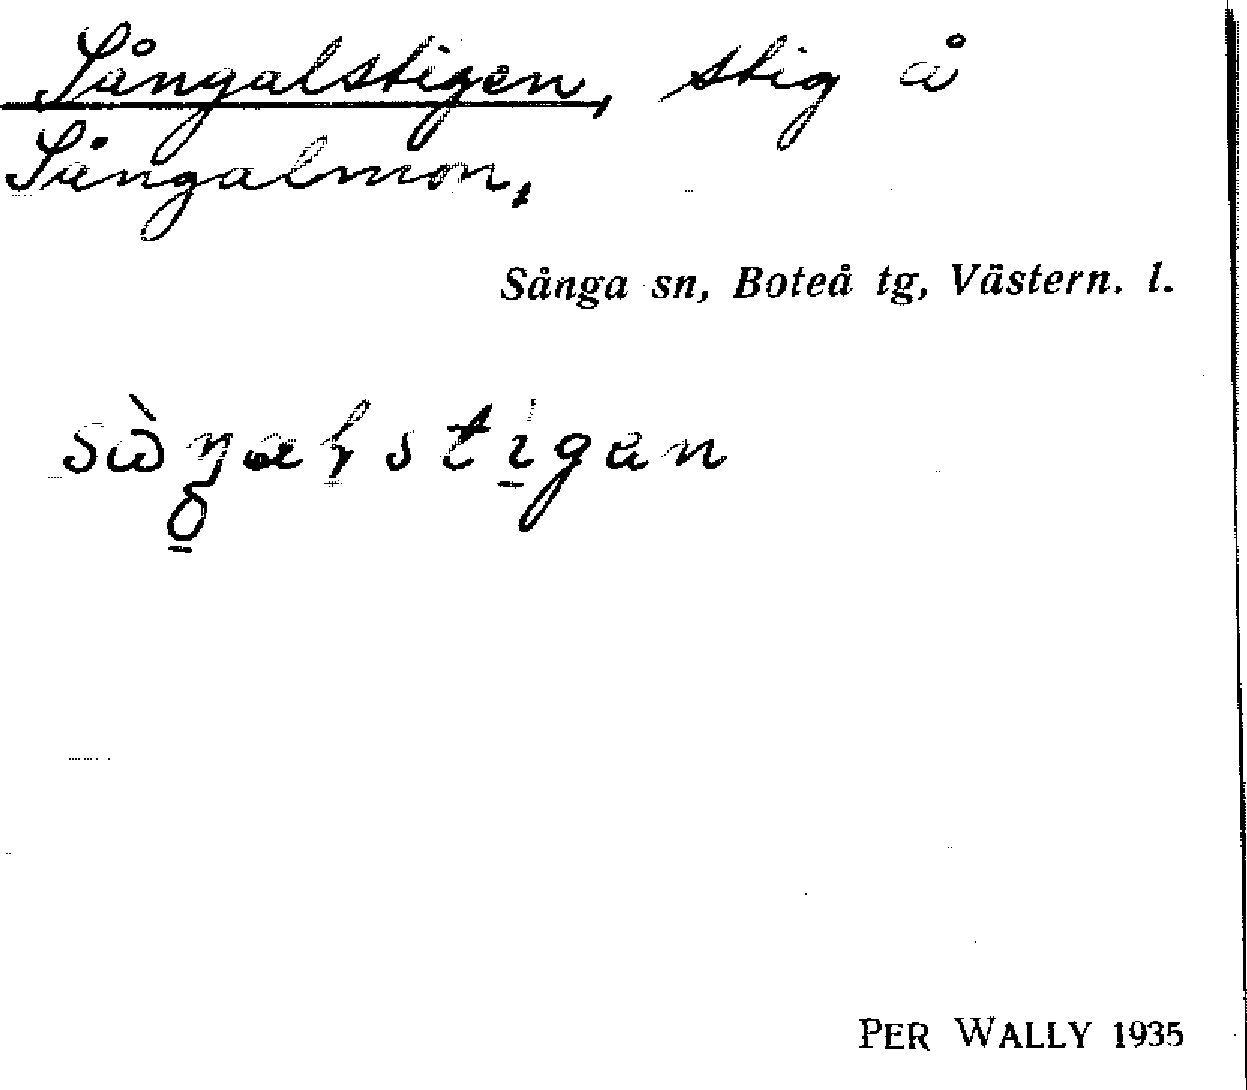 Sångalstigen, stig å
Sångalmon,
Sånga sn, Boteå tg, Västern. l.
PER WALLY 1935